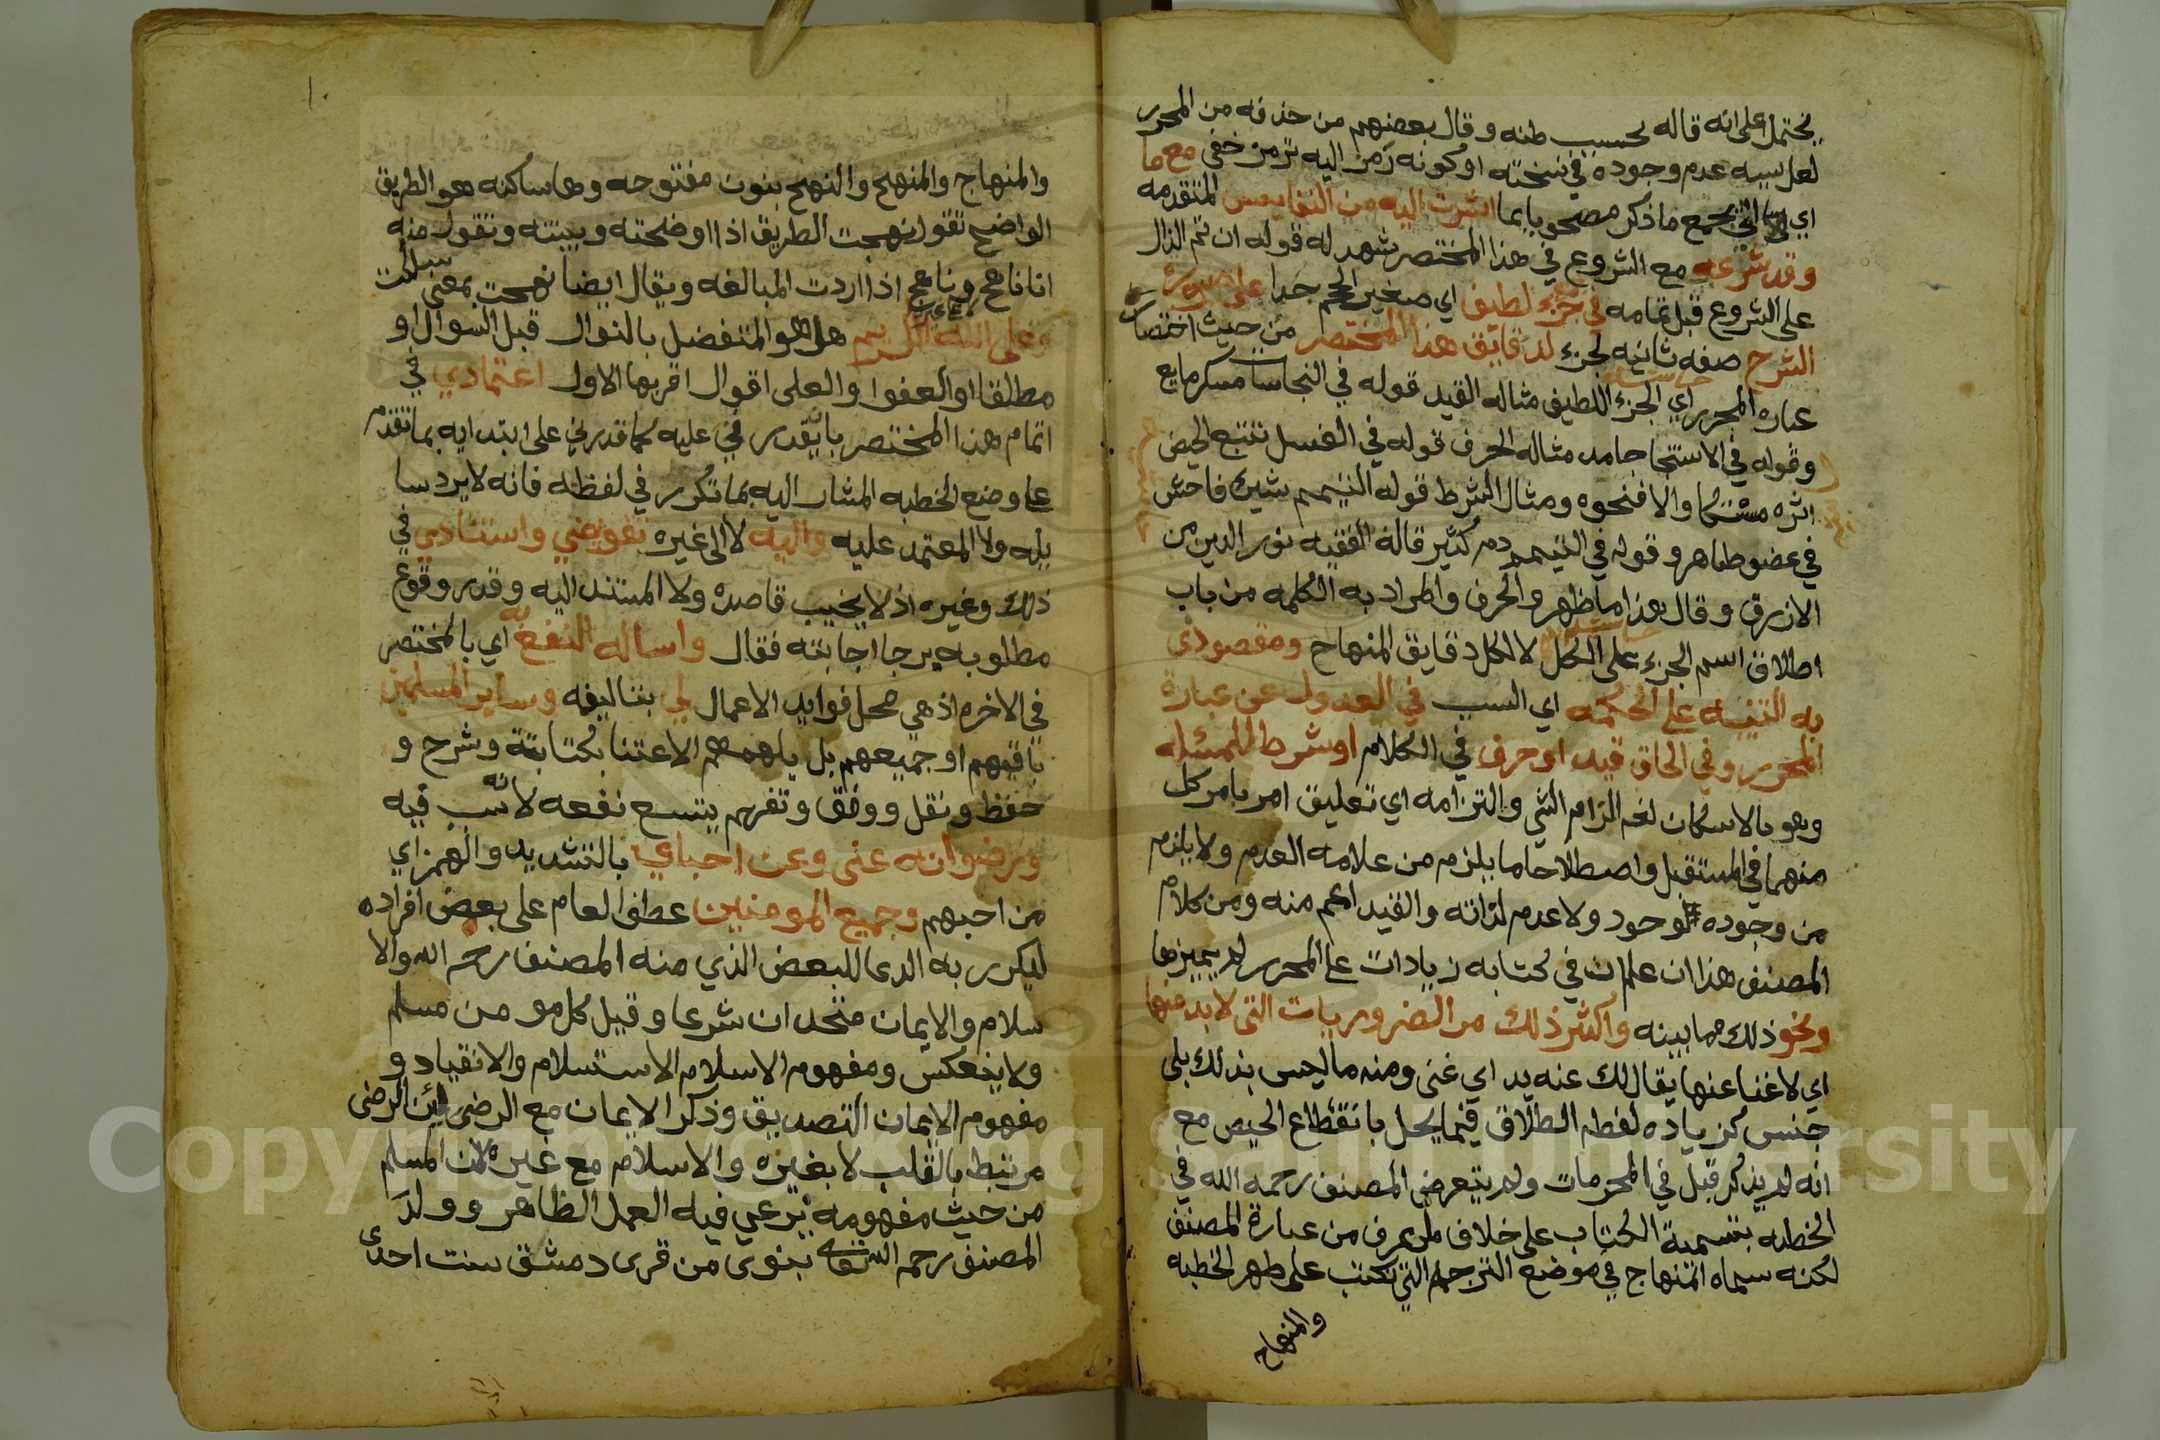 يحتمل على انه قاله بحسب ظنه وقال بعضهم من حذفه من المحرر
لعل سببه عدم وجوده في نسخته او كونه رمز اليه برمز خفي مع ما
اي اتى بجميع ما ذكر مصحوبا بما اشرت اليه من النفايس المتقدمه
وقد شرعت مع الشروع في هذا المختصر شهد له قوله ان تم الزال
على الشروع قبل تمامه في جزء لطيف اي صغير الحجم جدا على صورة
الشرح صفه ثانيه لجزء لدقايق هذا المختصر من حيث اختصار
عبارة المحرر اي الجزء اللطيف مثاله القيد قوله في النجاسات مسكر مايع
وقوله في الاستنجا جامد مثاله الحرف قوله في الغسل تتبع لحيض
اثره مسكا والا فنحوه ومثال الشرط قوله التيمم بشين فاحش
في عضو ظاهر وقوله في التيمم دم كثير قاله الفقيه نور الدين بن
الازرق وقال بعذا ما ظهر والحرف والمراد به الكلمه من باب
اطلاق اسم الجزء على الكل لا لكل دقايق المنهاج ومقصودي
به التنبيه على الحكمه اي السبب في العدول عن عبارة
المحرر وفي الحاق قيد او حرف في الكلام او شرط للمسئله
وهو بالاسكان لغه الزام الشي والتزامه اي تعليق امر بامر كل
منهما في المستقبل واصطلاحا ما يلزم من علامه العدم ولا يلزم
من وجوده وجود ولا عدم لذاته والقيد اعم منه ومن كلام
المصنف هذا ان علم ان في كتابه زيادات على المحرر لم يميزها
ونحو ذلك مما بينه واكثر ذلك من الضروريات التي لا بد منها
اي لا غنا عنها يقال لك عنه بد اي غنى ومنه ما ليس بذلك بلى
حسن كزياده لفظه الطلاق فيما يحل بانقطاع الحيض مع
انه لم يذكر قبل في المحرمات ولم يتعرض المصنف رحمه الله في
الخطبه بتسمية الكتاب على خلاف ما عرف من عبارة المصنف
لكنه سماه المنهاج في موضع الترجمه التي تكتب على ظهر الخطبه
والمنهاج
والمنهاج والمنهج والنهج بنون مفتوحه وها ساكنه هو الطريق
الواضح تقول نهجت الطريق اذا اوضحته وبينته وتقول منه
انا ناهج ونامج اذا اردت المبالغه ويقال ايضا نهجت بمعنى سلكت
وعلى الله الكريم هو المتفضل بالنوال قبل السوال او
مطلقا او العفوا والعلى اقوال اقربها الاول اعتمادي في
اتمام هذا المختصر بان يقدرني عليه كما قدرني على ابتدايه بما تقدم
على وضع الخطبه المشار اليه بما تكرر في لفظه فانه لا يرد سا
يله ولا المعتمد عليه واليه لا الى غيره تفويضي واستنادي في
ذلك وغيره اذ لا يخيب قاصده ولا المستند اليه وقدر وقوع
مطلوبه برجا اجابته فقال واساله النفع به اي بالمختصر
في الاخره اذ هي محل فوايد الاعمال لي بتاليفه وساير المسلمين
باقيهم او جميعهم بل يلهمهم الاعتنا بكتابة وشرح و
حفظ ونقل ووقف وتفهم يتسع نفعه لانه سبب فيه
ورضوانه عني وعن احباي بالتشديد والهمز اي
من احبهم وجميع المومنين عطف العام على بعض افراده
ليكرر به الدعا للبعض الذي منه المصنف رحمه الله والا
سلام والايمان متحدان شرعا وقيل كل مومن مسلم
ولا ينعكس ومفهوم الاسلام الاستسلام والانقياد و
مفهوم الايمان التصديق وذكر الايمان مع الرضى لان الرضى
مرتبط بالقلب لا بغيره والاسلام مع غيره لان المسلم
من حيث مفهومه يرعى فيه العمل الظاهر وولد
المصنف رحمه الله تعالى بنوى من قرى دمشق سنت احدى
Copyright © King Saud University